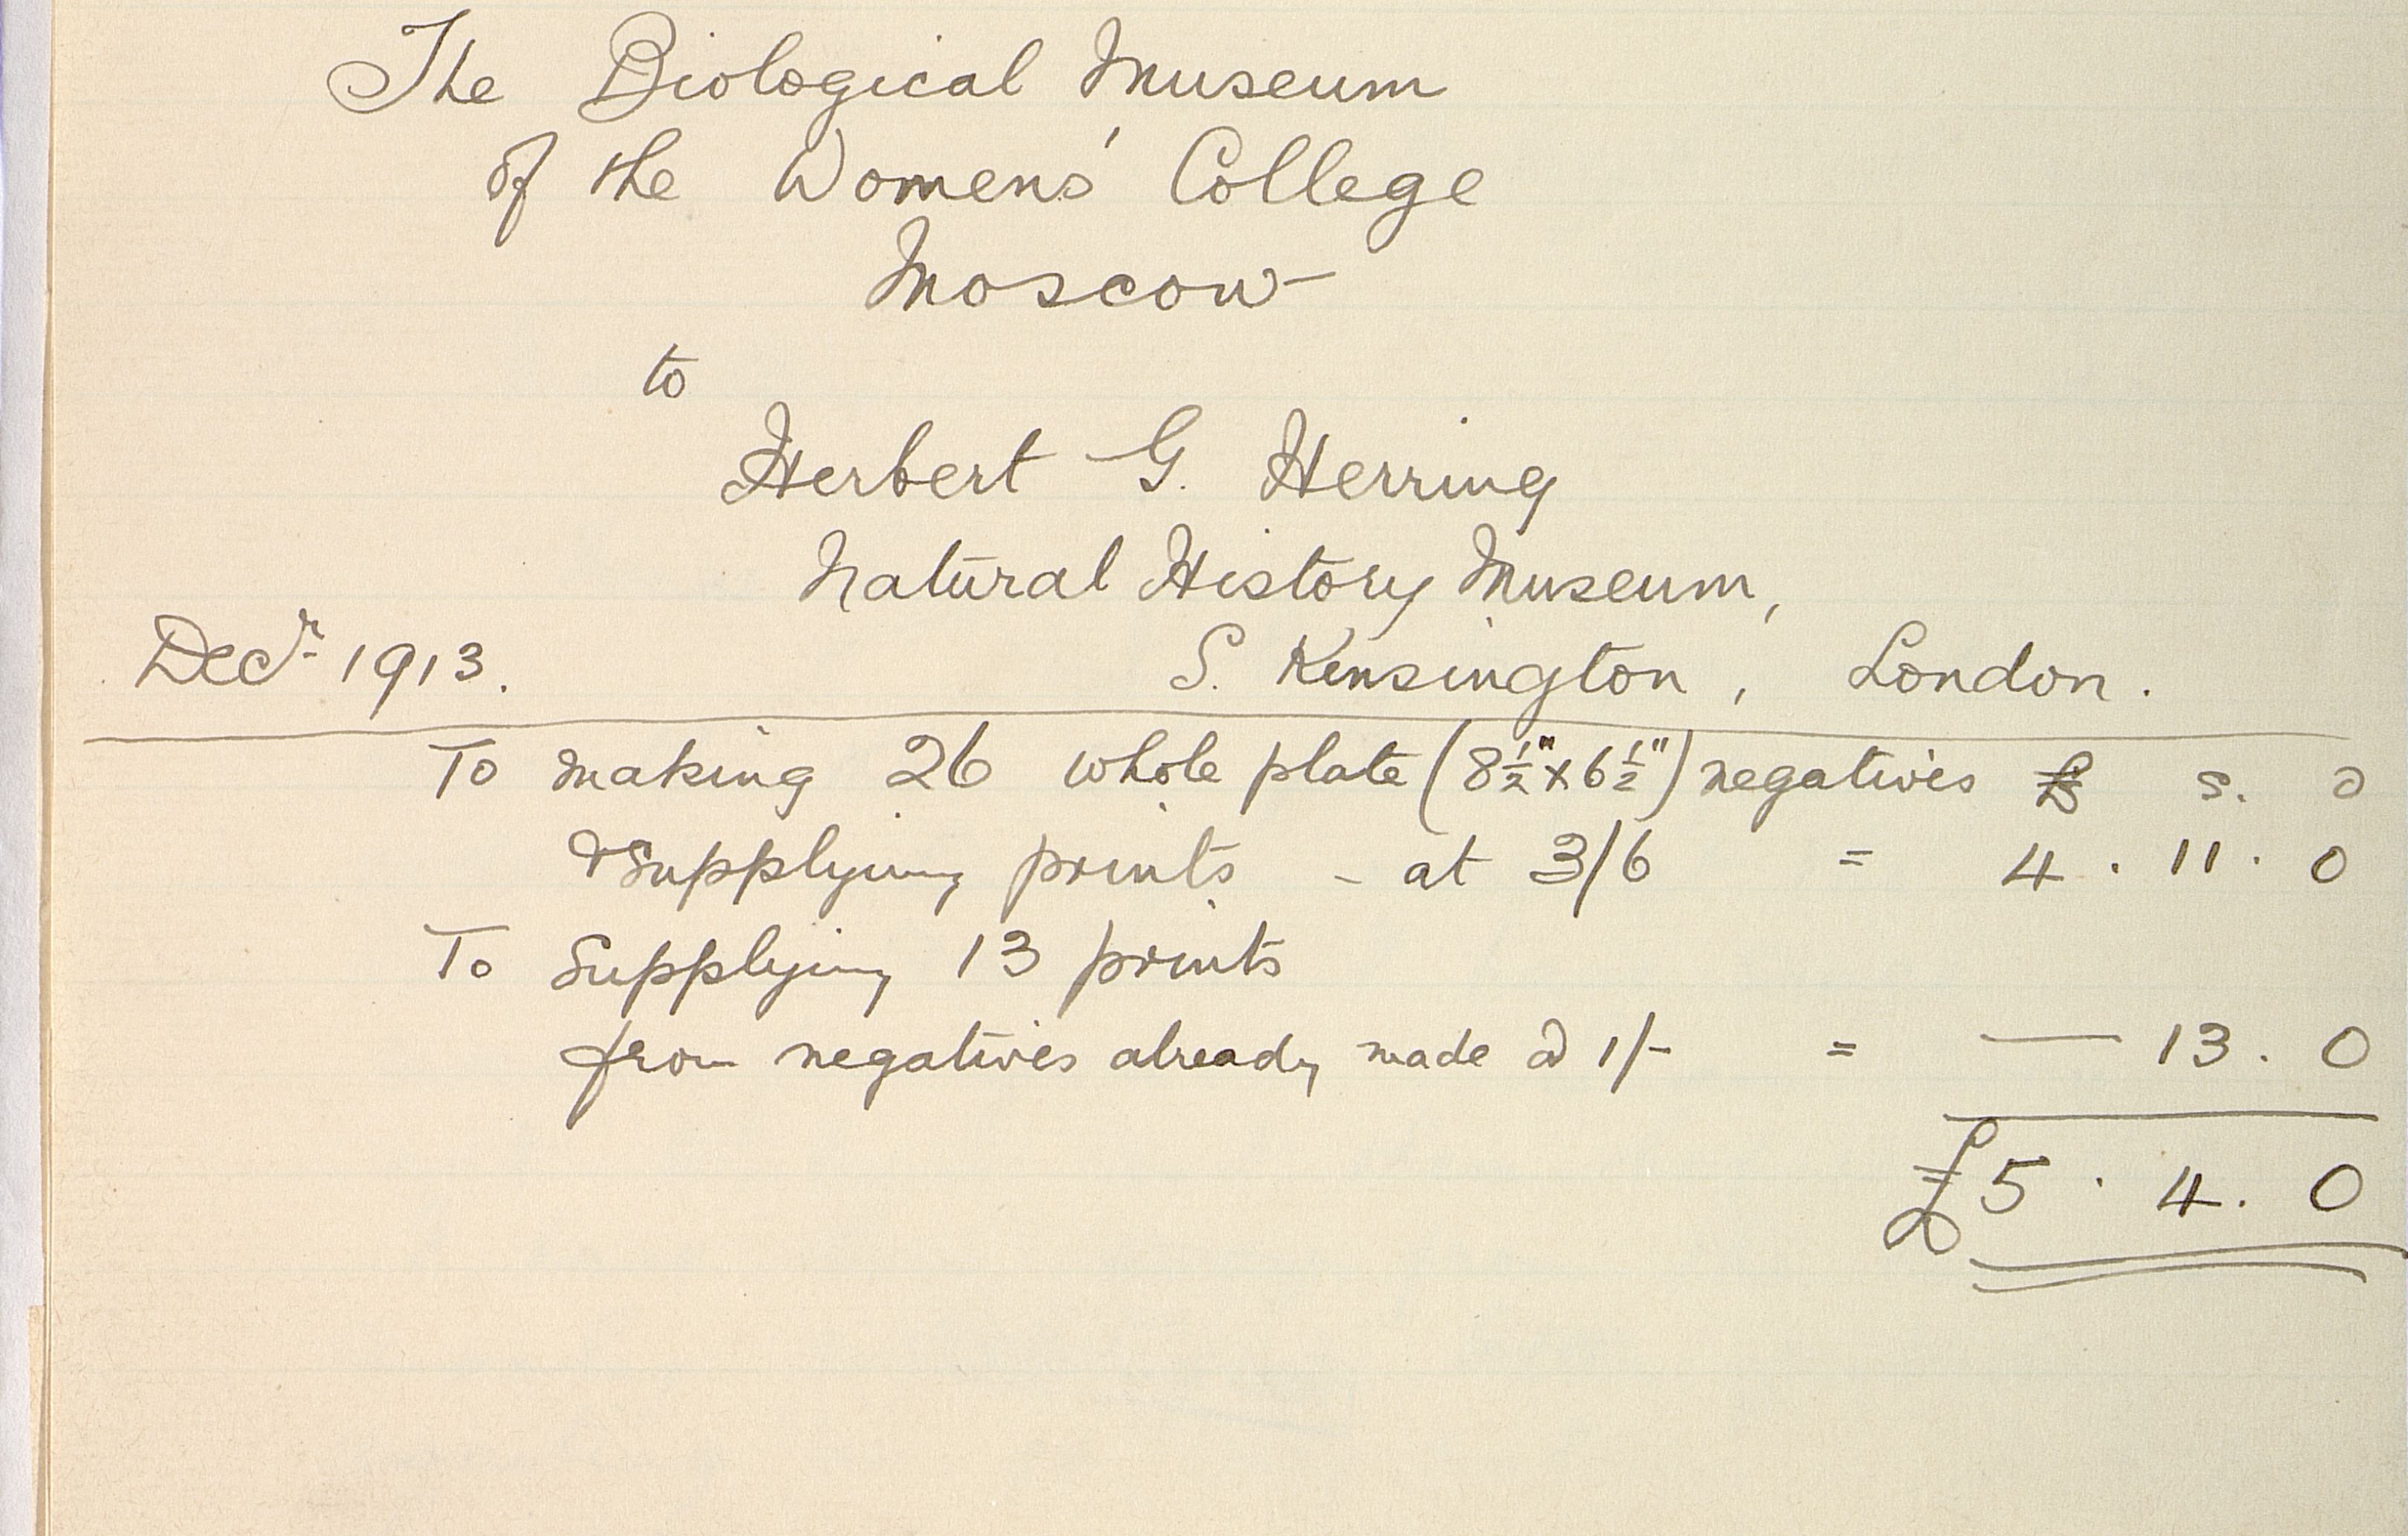 The Biological Museum
of the Womens' College
Moscow
to
Herbert G. Herring
Natural History Museum,
Decr 1913. S. Kensington, London.
To making 26 whole plate (8½" x 6½") negatives £ s. d
& supplying prints - at 3/6 = 4 . 11 . 0
To supplying 13 prints
from negatives already made @ 1/- = — 13 . 0
£5 . 4 . 0